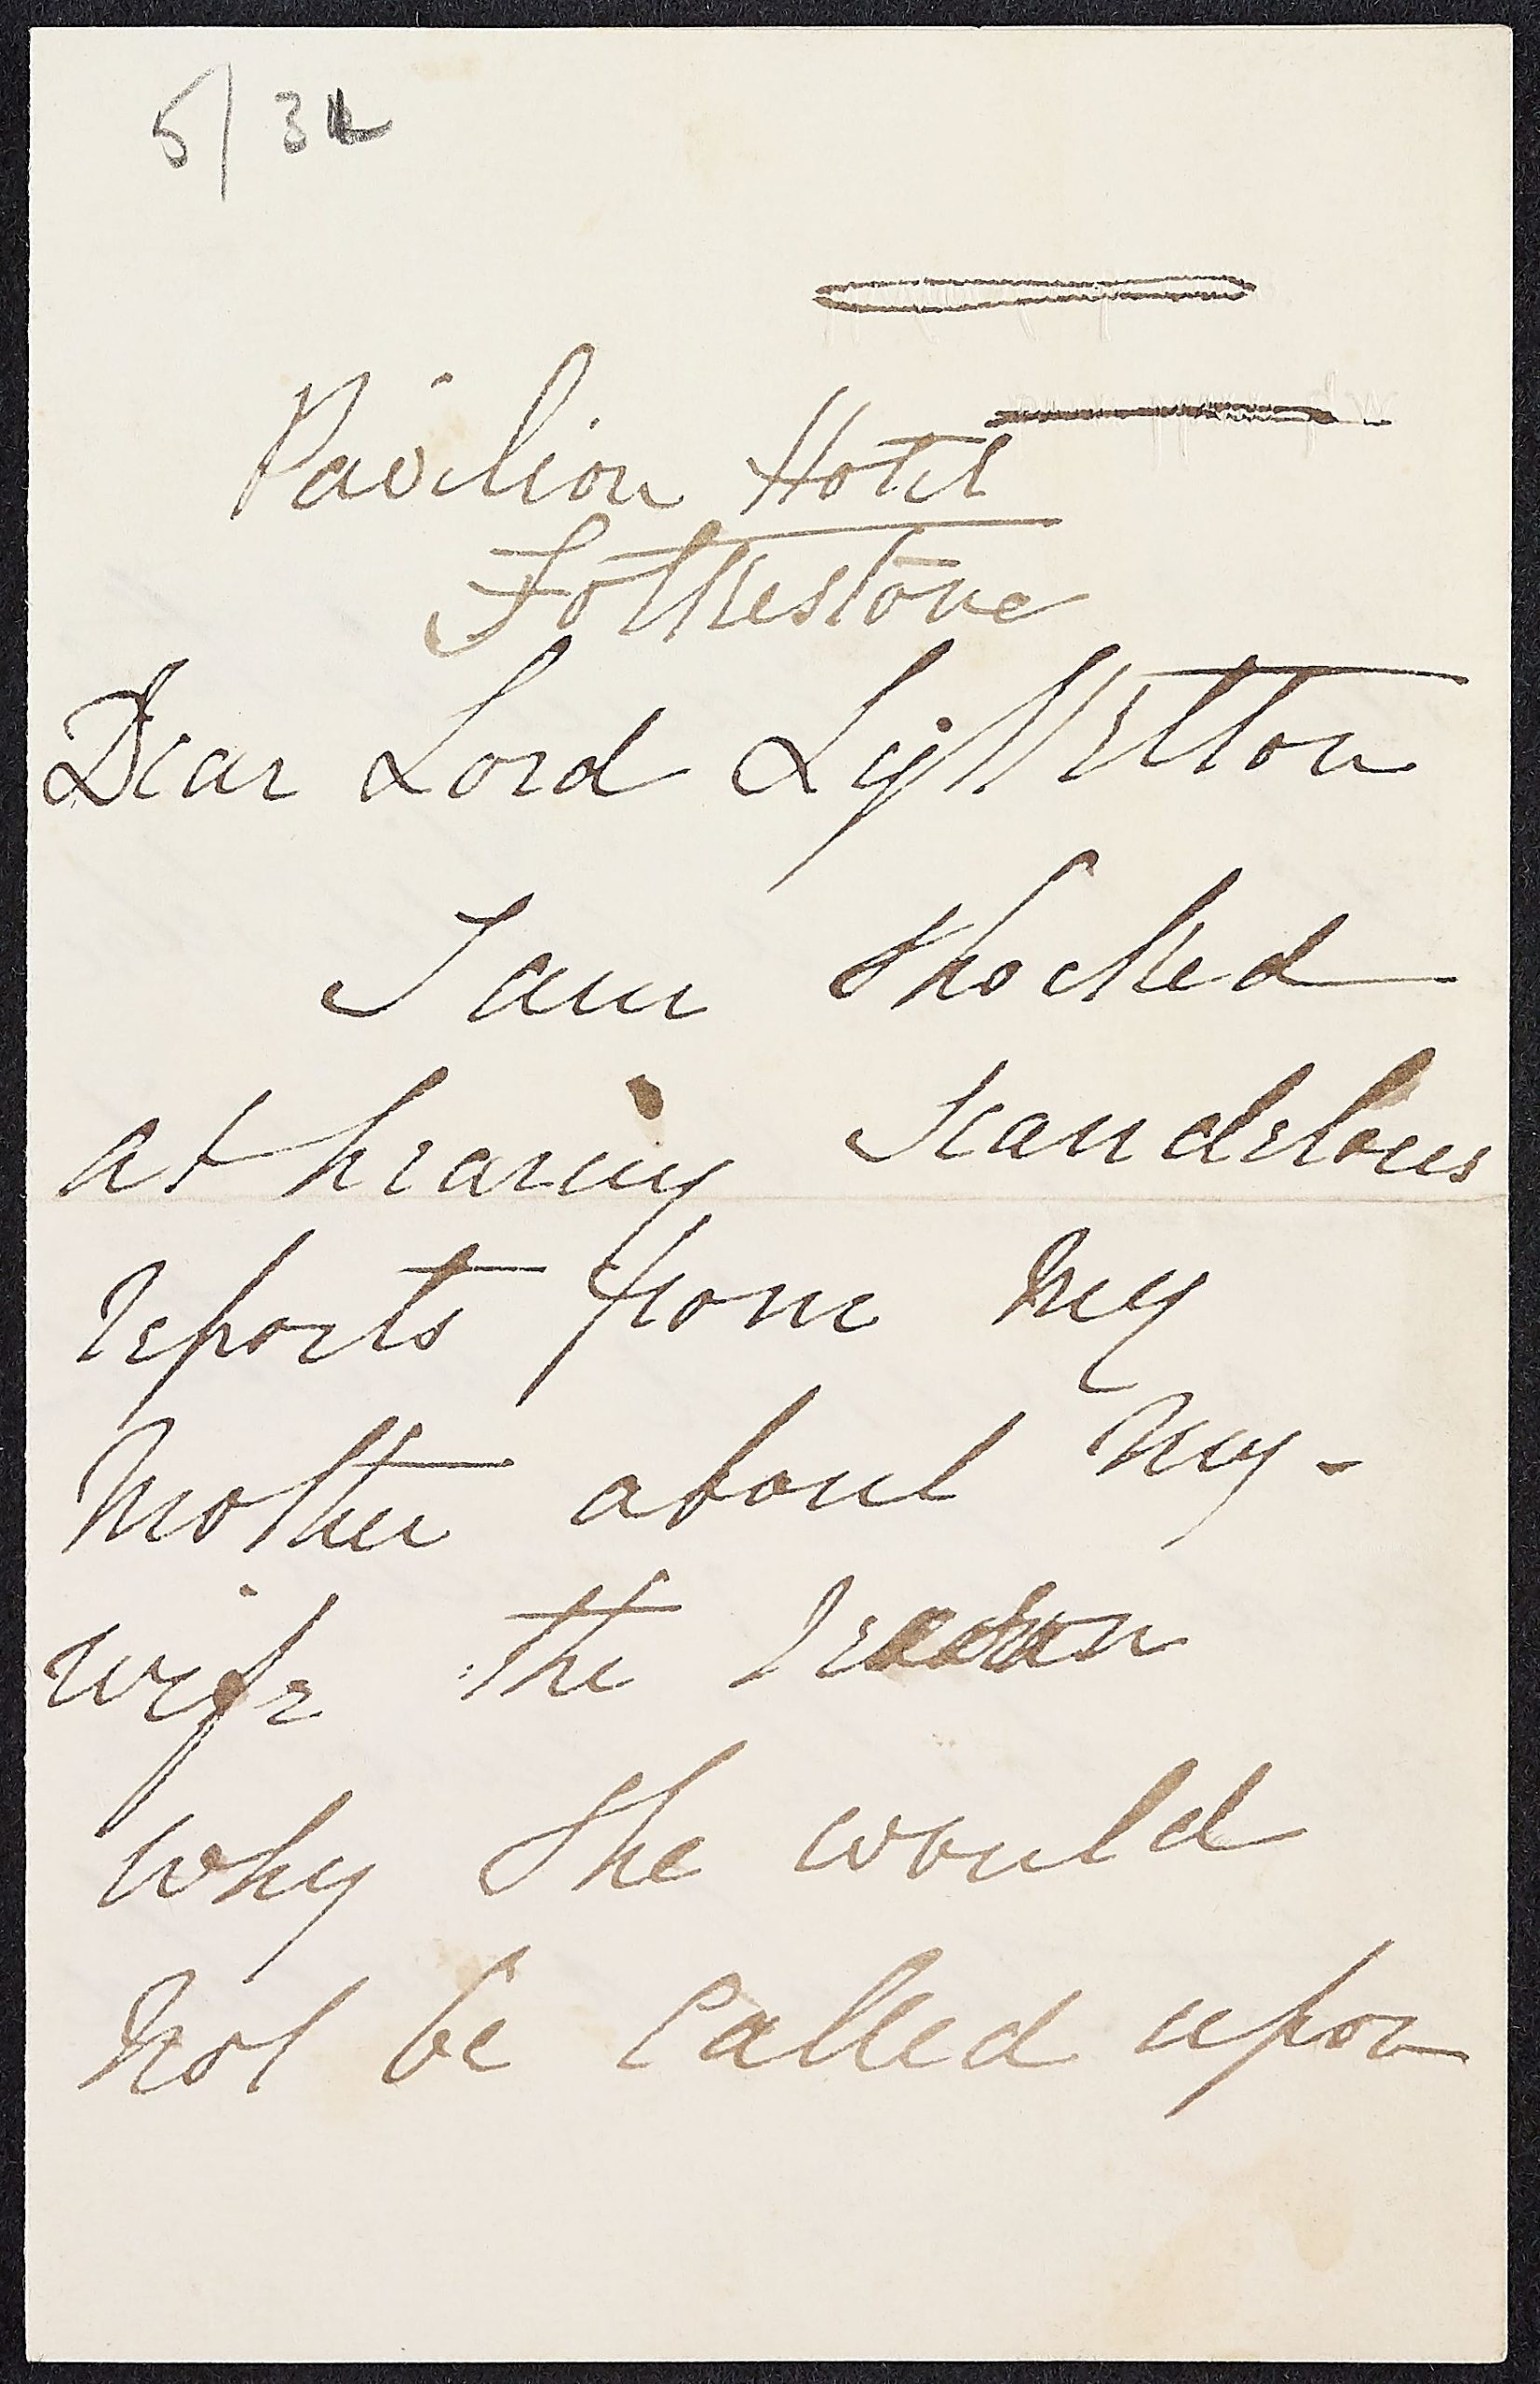 5/32
Pavilion Hotel
Folkestone
Dear Lord Lyttelton
I am shocked
at hearing scandelous
reports from my
mother about my-
wife the reason
why she would
not be called upon